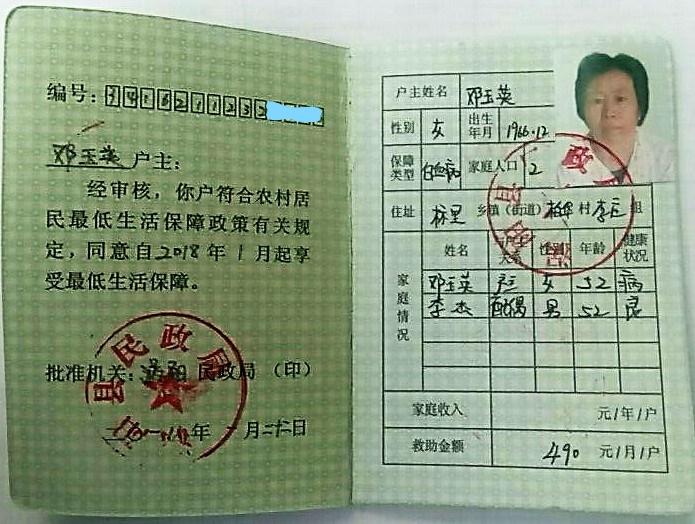 编号:
邓玉英 户主:
经审核,你户符合农村居
民最低生活保障政策有关规
定,同意自2018年1月起享
受最低生活保障。
批准机关: 民政局 (印)
年一月二十二日
县民政局
户主姓名 邓玉英
性别 女 出生年月 1966.12
保障类型 白血病 家庭人口 2
住址 乡镇(街道) 村 组
家庭情况
姓名 性别 年龄 健康状况
邓玉英 户主 女 52 病
李杰 配偶 男 52 良
家庭收入 元1年1户
救助金额 490 元1月1户